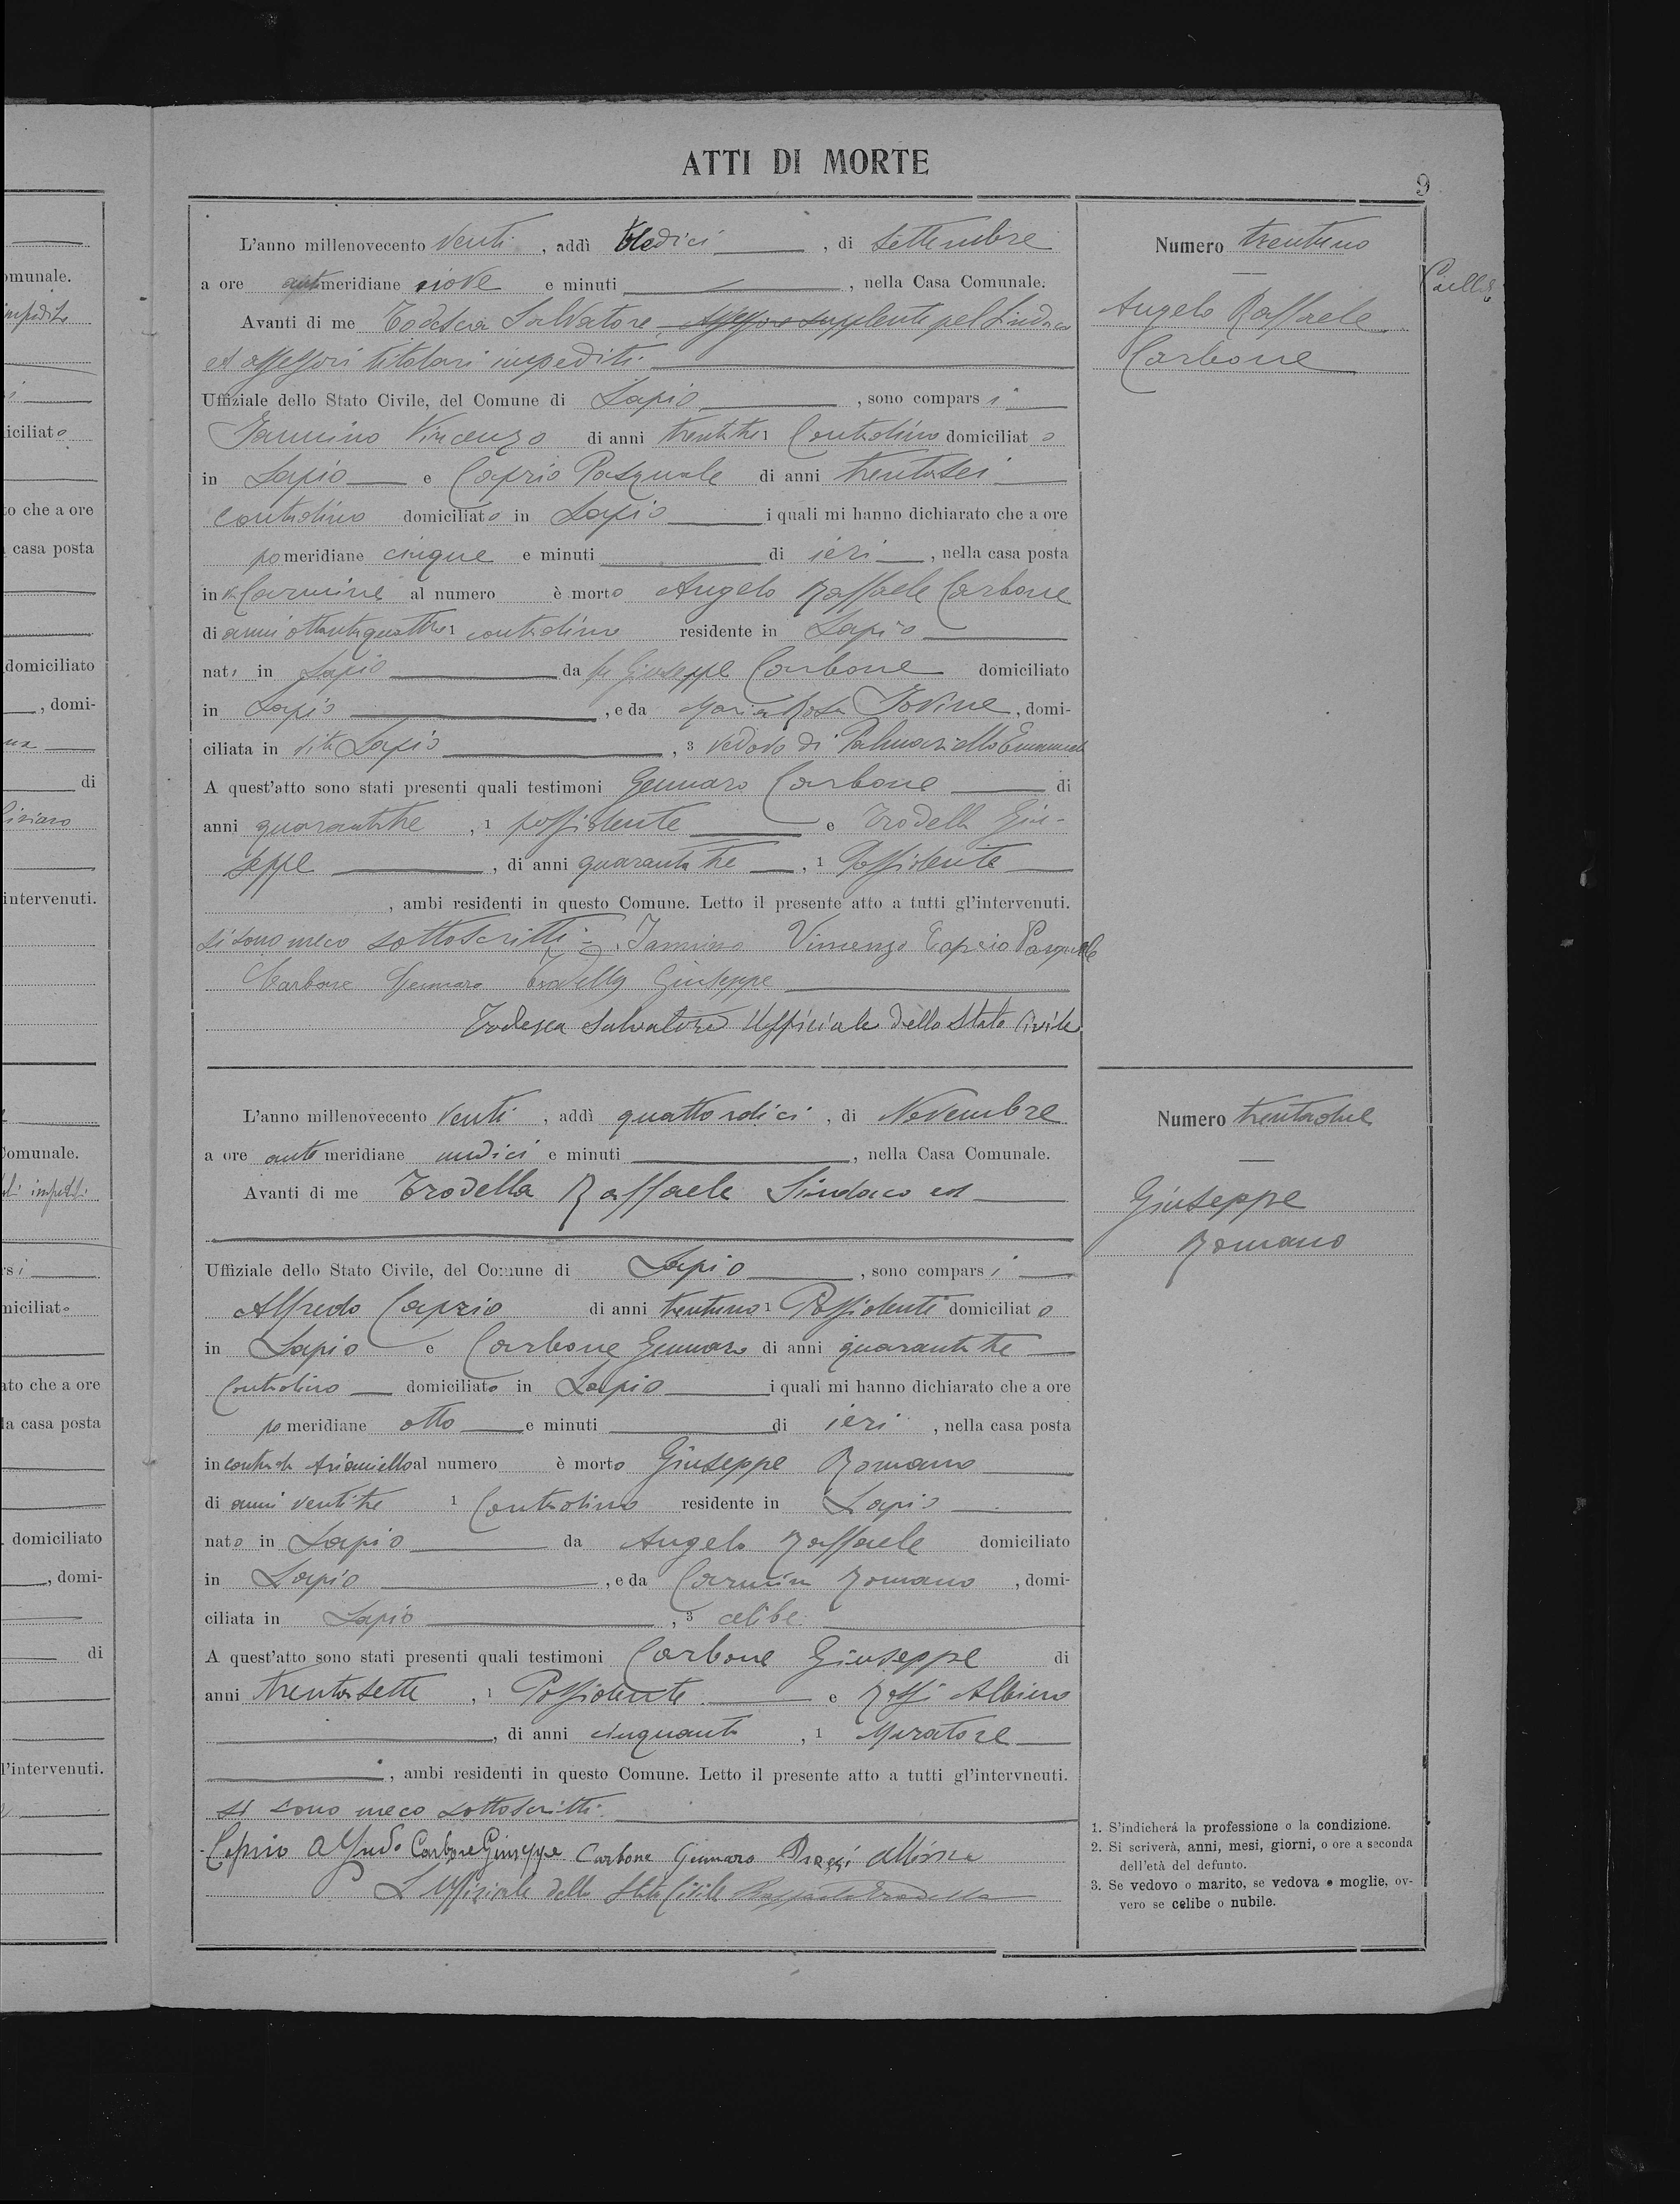 ATTI DI MORTE
9
L'anno millenovecento venti, addì tredici, di Settembre
a ore antimeridiane nove e minuti, nella Casa Comunale.
Avanti di me Todesca Salvatore Assessore supplente pel Sindaco
ed assessori titolari impediti
Uffiziale dello Stato Civile, del Comune di Lapio, sono comparsi
Iannino Vincenzo di anni trentatre 1 Contadino domiciliato
in Lapio e Caprio Pasquale di anni trentasei
contadino domiciliato in Lapio i quali mi hanno dichiarato che a ore
pomeridiane cinque e minuti di ieri, nella casa posta
in Carmine al numero è morto Angelo Raffaele Carbone
di anni ottantaquattro 1 contadino residente in Lapio
nato in Lapio da fu Giuseppe Carbone domiciliato
in Lapio, e da Maria Rosa Iovine, domi-
ciliata in vita Lapio, 3 vedovo di Palmariello Emanuela
A quest'atto sono stati presenti quali testimoni Gennaro Carbone di
anni quarantatre, 1 possidente e Trodella Giu-
seppe, di anni quarantatre, 1 Possidente
, ambi residenti in questo Comune. Letto il presente atto a tutti gl'intervenuti.
si sono meco sottoscritti = Iannino Vincenzo Caprio Pasquale
Carbone Gennaro Trodella Giuseppe
Todesca Salvatore Ufficiale dello Stato Civile
Numero trentuno
Angelo Raffaele
Carbone
L'anno millenovecento venti, addì quattordici, di Novembre
a ore antimeridiane undici e minuti, nella Casa Comunale.
Avanti di me Trodella Raffaele Sindaco ed
Uffiziale dello Stato Civile, del Comune di Lapio, sono comparsi
Alfredo Caprio di anni trentuno 1 Possidenti domiciliato
in Lapio e Carbone Gennaro di anni quarantatre
Contadino domiciliato in Lapio i quali mi hanno dichiarato che a ore
pomeridiane otto e minuti di ieri, nella casa posta
in contrada Arianiello al numero è morto Giuseppe Romano
di anni ventitre 1 Contadino residente in Lapio
nato in Lapio da Angelo Raffaele domiciliato
in Lapio, e da Carmina Romano, domi-
ciliata in Lapio, 3 celibe.
A quest'atto sono stati presenti quali testimoni Carbone Giuseppe di
anni trentasette, 1 Possidente e Rossi Albino
, di anni cinquanta, 1 Muratore
, ambi residenti in questo Comune. Letto il presente atto a tutti gl'intervneuti.
si sono meco sottoscritti.
Caprio Alfredo Carbone Giuseppe Carbone Gennaro
L'Uffiziale dello Stato Civile Raffaele Trodella
Numero trentadue
Giuseppe
Romano
1. S'indicherá la professione o la condizione.
2. Si scriverà, anni, mesi, giorni, o ore a seconda
dell'età del defunto.
3. Se vedovo o marito, se vedova o moglie, ov-
vero se celibe o nubile.